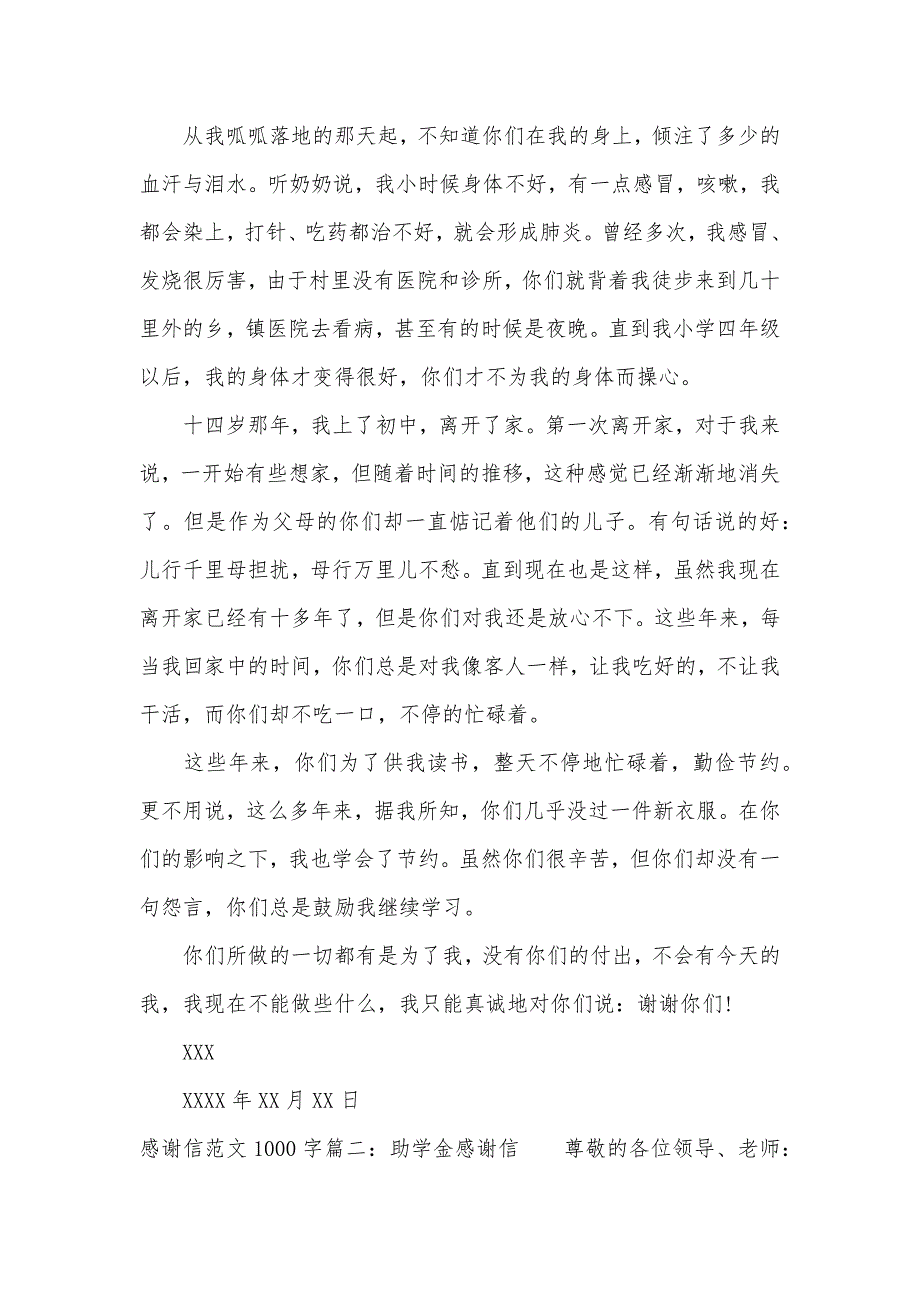 从我呱呱落地的那天起，不知道你们在我的身上，倾注了多少的
血汗与泪水。听奶奶说，我小时候身体不好，有一点感冒，咳嗽，我
都会染上，打针、吃药都治不好，就会形成肺炎。曾经多次，我感冒、
发烧很厉害，由于村里没有医院和诊所，你们就背着我徒步来到几十
里外的乡，镇医院去看病，甚至有的时候是夜晚。直到我小学四年级
以后，我的身体才变得很好，你们才不为我的身体而操心。
十四岁那年，我上了初中，离开了家。第一次离开家，对于我来
说，一开始有些想家，但随着时间的推移，这种感觉已经渐渐地消失
了。但是作为父母的你们却一直惦记着他们的儿子。有句话说的好：
儿行千里母担扰，母行万里儿不愁。直到现在也是这样，虽然我现在
离开家已经有十多年了，但是你们对我还是放心不下。这些年来，每
当我回家中的时间，你们总是对我像客人一样，让我吃好的，不让我
干活，而你们却不吃一口，不停的忙碌着。
这些年来，你们为了供我读书，整天不停地忙碌着，勤俭节约。
更不用说，这么多年来，据我所知，你们几乎没过一件新衣服。在你
们的影响之下，我也学会了节约。虽然你们很辛苦，但你们却没有一
句怨言，你们总是鼓励我继续学习。
你们所做的一切都有是为了我，没有你们的付出，不会有今天的
我，我现在不能做些什么，我只能真诚地对你们说：谢谢你们!
XXX
XXXX 年 XX 月 XX 日
感谢信范文 1000 字篇二：助学金感谢信　　尊敬的各位领导、老师：